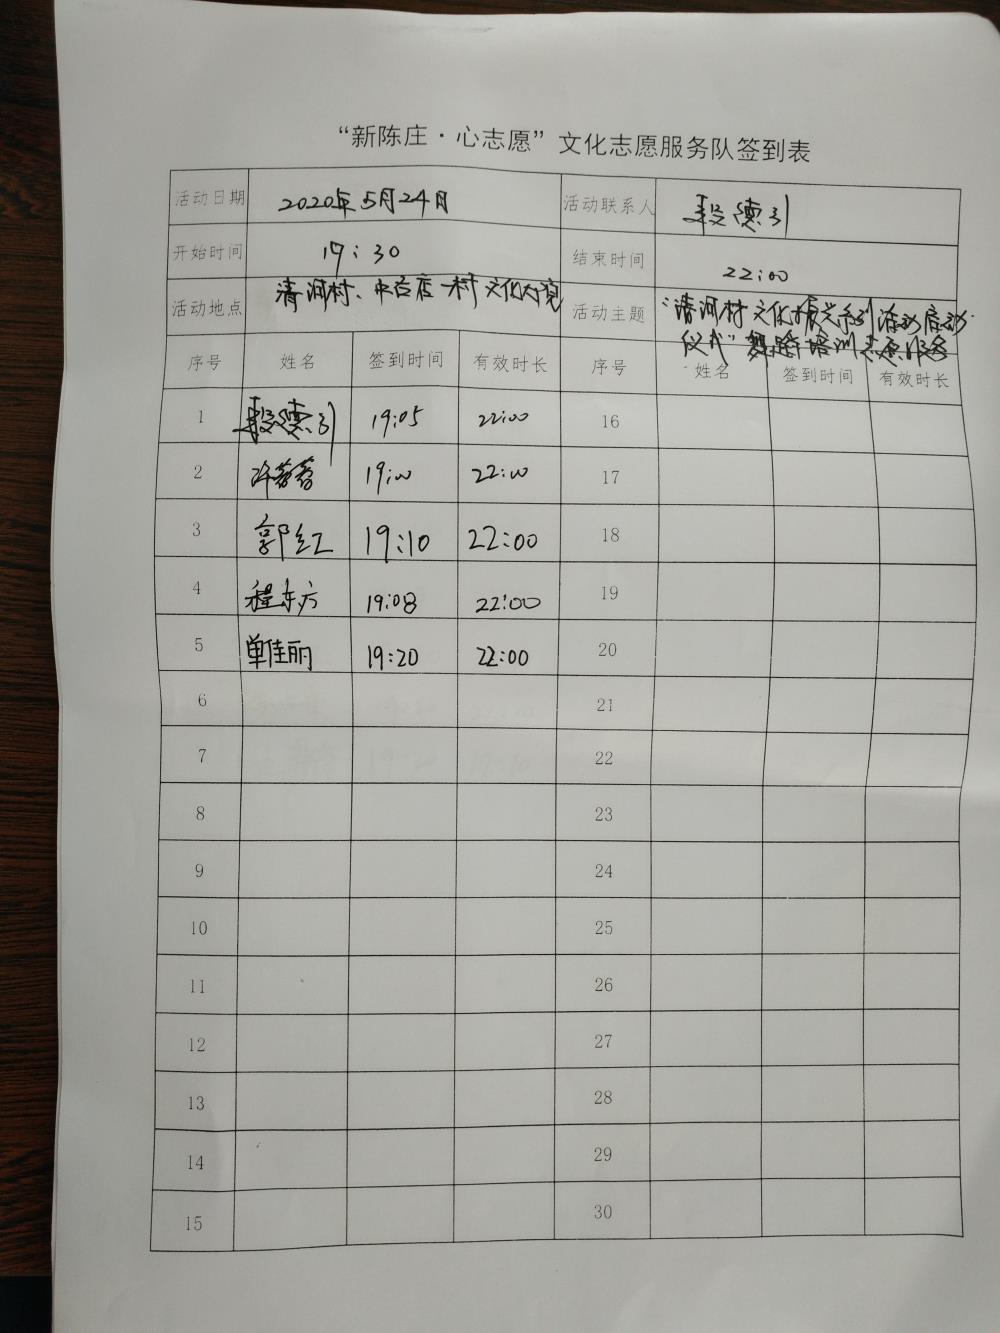 “新陈庄·心志愿”文化志愿服务队签到表
活动日期 2020年5月24日 活动联系人 段德引
开始时间 19:30 结束时间 22:00
活动地点 清河村、中台店一村文化大院 活动主题 “清河村文化振兴系列活动启动
仪式”舞蹈培训志愿服务
序号 姓名 签到时间 有效时长 序号 姓名 签到时间 有效时长
1 段德引 19:05 22:00 16
2 许蓉蓉 19:00 22:00 17
3 郭红 19:10 22:00 18
4 程东方 19:08 22:00 19
5 单佳丽 19:20 22:00 20
6 21
7 22
8 23
9 24
10 25
11 26
12 27
13 28
14 29
15 30